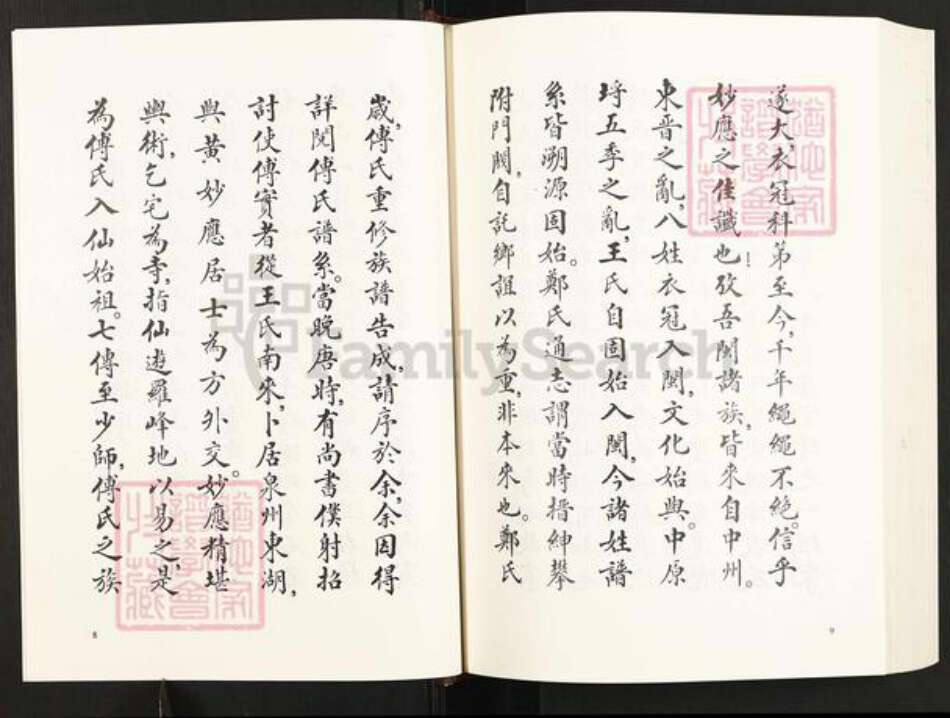 歲,傅氏重修族譜告成,請序於余,余因得
詳閱傅氏譜系。當晚唐時,有尚書僕射招
討使傅實者從王氏南來,卜居泉州東湖,
與黄妙應居士為方外交。妙應精堪
輿術,乞宅為寺,指仙遊羅峰地以易之,是
為傅氏入仙始祖。七傳至少師,傅氏之族
8
遂大,衣冠科第至今,千年繩繩不絶。信乎
妙應之佳讖也!攷吾閩諸族,皆来自中州。
東晋之亂,八姓衣冠入閩,文化始興。中原
垺五季之亂,王氏自固始入閩,今諸姓譜
系皆溯源固始。鄭氏通志謂當時搢紳攀
附門閥,自託鄉誼以為重,非本来也。鄭氏
9
FamilySearch